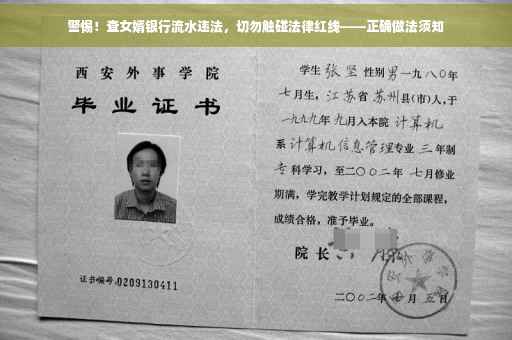 警惕！查女婿银行流水违法，切勿触碰法律红线——正确做法须知
西安外事学院
毕业证书
证书编号:0209130411
学生 张坚 性别 男 一九八〇年
七月生，江苏省 苏州县(市)人，于
一九九九年 九月入本院 计算机
系 计算机信息管理专业 三年制
专科学习，至二〇〇二年 七月修业
期满，学完教学计划规定的全部课程，
成绩合格，准予毕业。
院长
二〇〇二年 七月 五日